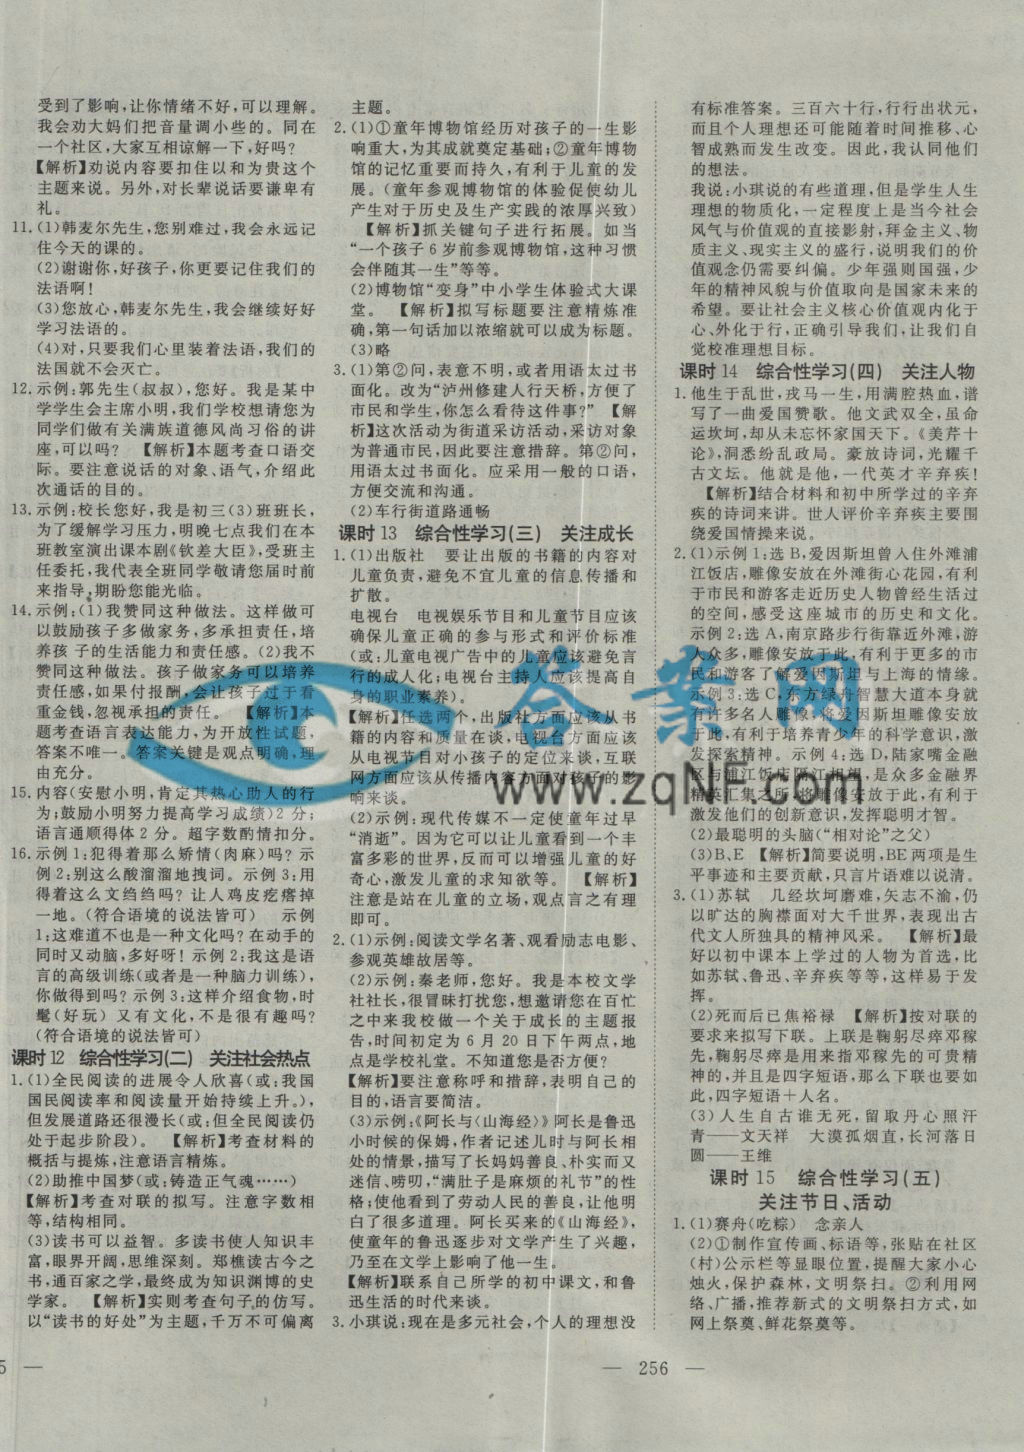 受到了影响,让你情绪不好,可以理解。
我会劝大妈们把音量调小些的。同在
一个社区,大家互相谅解一下,好吗?
【解析】劝说内容要扣住以和为贵这个
主题来说。另外,对长辈说话要谦卑有
礼。
11.(1)韩麦尔先生,您别难过,我会永远记
住今天的课的。
(2)谢谢你,好孩子,你更要记住我们的
法语啊!
(3)您放心,韩麦尔先生,我会继续好好
学习法语的。
(4)对,只要我们心里装着法语,我们的
法国就不会灭亡。
12.示例:郭先生(叔叔),您好。我是某中
学学生会主席小明,我们学校想请您为
同学们做有关满族道德风尚习俗的讲
座,可以吗? 【解析】本题考查口语交
际。要注意说话的对象、语气,介绍此
次通话的目的。
13.示例:校长您好,我是初三(3)班班长,
为了缓解学习压力,明晚七点我们在本
班教室演出课本剧《钦差大臣》,受班主
任委托,我代表全班同学敬请您届时前
来指导,期盼您能光临。
14.示例:(1)我赞同这种做法。这样做可
以鼓励孩子多做家务,多承担责任,培
养孩子的生活能力和责任感。(2)我不
赞同这种做法。孩子做家务可以培养
责任感,如果付报酬,会让孩子过于看
重金钱,忽视承担的责任。 【解析】本
题考查语言表达能力,为开放性试题,
答案不唯一。答案关键是观点明确,理
由充分。
15.内容(安慰小明,肯定其热心助人的行
为;鼓励小明努力提高学习成绩)2分;
语言通顺得体2分。超字数酌情扣分。
16.示例1:犯得着那么矫情(肉麻)吗?示
例2:别这么酸溜溜地拽词。示例3:用
得着这么文绉绉吗?让人鸡皮疙瘩掉
一地。(符合语境的说法皆可) 示例
1:这难道不也是一种文化吗?在动手的
同时又动脑,多好呀!示例2:我这是语
言的高级训练(或者是一种脑力训练),
你做得到吗?示例3:这样介绍食物,时
髦(好玩)又有文化,不是很有趣吗?
(符合语境的说法皆可)
课时12 综合性学习(二) 关注社会热点
1.(1)全民阅读的进展令人欣喜(或:我国
国民阅读率和阅读量开始持续上升。),
但发展道路还很漫长(或:但全民阅读仍
处于起步阶段)。 【解析】考查材料的
概括与提炼,注意语言精炼。
(2)助推中国梦(或:铸造正气魂……)
【解析】考查对联的拟写。注意字数相
等,结构相同。
(3)读书可以益智。多读书使人知识丰
富,眼界开阔,思维深刻。郑樵读古今之
书,通百家之学,最终成为知识渊博的史
学家。 【解析】实则考查句子的仿写。
以“读书的好处”为主题,千万不可偏离
5 —
主题。
2.(1)①童年博物馆经历对孩子的一生影
响重大,为其成就奠定基础;②童年博物
馆的记忆重要而持久,有利于儿童的发
展。(童年参观博物馆的体验促使幼儿
产生对于历史及生产实践的浓厚兴致)
【解析】抓关键句子进行拓展。如当
“一个孩子6岁前参观博物馆,这种习惯
会伴随其一生”等等。
(2)博物馆“变身”中小学生体验式大课
堂。 【解析】拟写标题要注意精炼准
确,第一句话加以浓缩就可以成为标题。
(3)略
3.(1)第②问,表意不明,或者用语太过书
面化。改为“泸州修建人行天桥,方便了
市民和学生,你怎么看待这件事?” 【解
析】这次活动为街道采访活动,采访对象
为普通市民,因此要注意措辞。第②问,
用语太过书面化。应采用一般的口语,
方便交流和沟通。
(2)车行街道路通畅
课时13 综合性学习(三) 关注成长
1.(1)出版社 要让出版的书籍的内容对
儿童负责,避免不宜儿童的信息传播和
扩散。
电视台 电视娱乐节目和儿童节目应该
确保儿童正确的参与形式和评价标准
(或:儿童电视广告中的儿童应该避免言
行的成人化;电视台主持人应该提高自
身的职业素养)。
【解析】任选两个,出版社方面应该从书
籍的内容和质量在谈,电视台方面应该
从电视节目对小孩子的定位来谈,互联
网方面应该从传播内容方面对孩子的影
响来谈。
(2)示例:现代传媒不一定使童年过早
“消逝”。因为它可以让儿童看到一个丰
富多彩的世界,反而可以增强儿童的好
奇心,激发儿童的求知欲等。 【解析】
注意是站在儿童的立场,观点言之有理
即可。
2.(1)示例:阅读文学名著、观看励志电影、
参观英雄故居等。
(2)示例:秦老师,您好。我是本校文学
社社长,很冒昧打扰您,想邀请您在百忙
之中来我校做一个关于成长的主题报
告,时间初定为6月20日下午两点,地
点是学校礼堂。不知道您是否方便?
【解析】要注意称呼和措辞,表明自己的
目的,语言要简洁。
(3)示例:《阿长与〈山海经〉》阿长是鲁迅
小时候的保姆,作者记述儿时与阿长相
处的情景,描写了长妈妈善良、朴实而又
迷信、唠叨,“满肚子是麻烦的礼节”的性
格;使他看到了劳动人民的善良,让他明
白了很多道理。阿长买来的《山海经》,
使童年的鲁迅逐步对文学产生了兴趣,
乃至在文学上影响了他一生。
【解析】联系自己所学的初中课文,和鲁
迅生活的时代来谈。
3.小琪说:现在是多元社会,个人的理想没
— 256 —
有标准答案。三百六十行,行行出状元,
而且个人理想还可能随着时间推移、心
智成熟而发生改变。因此,我认同他们
的想法。
我说:小琪说的有些道理,但是学生人生
理想的物质化,一定程度上是当今社会
风气与价值观的直接影射,拜金主义、物
质主义、现实主义的盛行,说明我们的价
值观念仍需要纠偏。少年强则国强,少
年的精神风貌与价值取向是国家未来的
希望。要让社会主义核心价值观内化于
心、外化于行,正确引导我们,让我们自
觉校准理想目标。
课时14 综合性学习(四) 关注人物
1.他生于乱世,戎马一生,用满腔热血,谱
写了一曲爱国赞歌。他文武双全,虽命
运坎坷,却从未忘怀家国天下。《美芹十
论》,洞悉纷乱政局。豪放诗词,光耀千
古文坛。他就是他,一代英才辛弃疾!
【解析】结合材料和初中所学过的辛弃
疾的诗词来讲。世人评价辛弃疾主要围
绕爱国情操来说。
2.(1)示例1:选B,爱因斯坦曾人住外滩浦
江饭店,雕像安放在外滩街心花园,有利
于市民和游客走近历史人物曾经生活过
的空间,感受这座城市的历史和文化。
示例2:选A,南京路步行街靠近外滩,游
人众多,雕像安放于此,有利于更多的市
民和游客了解爱因斯坦与上海的情缘。
示例3:选C,东方绿舟智慧大道本身就
有许多人雕像,将爱因斯坦雕像安放于
此,有利于培养青少年的科学意识,激
发探索精神。示例4:选D,陆家嘴金融
区与浦江饭店隔江相望,是众多金融界
精英汇集之所,将雕像安放于此,有利于
激发他们的创新意识,发挥聪明才智。
(2)最聪明的头脑(“相对论”之父)
(3)B、E 【解析】简要说明,BE两项是生
平事迹和主要贡献,只言片语难以说清。
3.(1)苏轼 几经坎坷磨难,矢志不渝,仍
以旷达的胸襟面对大千世界,表现出古
代文人所独具的精神风采。 【解析】最
好以初中课本上学过的人物为首选,比
如苏轼、鲁迅、辛弃疾等等,这样易于发
挥。
(2)死而后已焦裕禄 【解析】按对联的
要求来拟写下联。上联是鞠躬尽瘁邓稼
先,鞠躬尽瘁是用来指邓稼先的可贵的精
神,并且是四字短语,那么下联也要如
此,四字短语+人名。
(3)人生自古谁无死,留取丹心照汗
青——文天祥 大漠孤烟直,长河落日
圆——王维
课时15 综合性学习(五)
关注节日、活动
1.(1)赛舟(吃粽) 念亲人
(2)①制作宣传画、标语等,张贴在社区
(村)公示栏等显眼位置,提醒大家小心
烛火,保护森林,文明祭扫。②利用网
络、广播,推荐新式的文明祭扫方式,如
网上祭奠、鲜花祭奠等。
答案网
www.zqNF.com